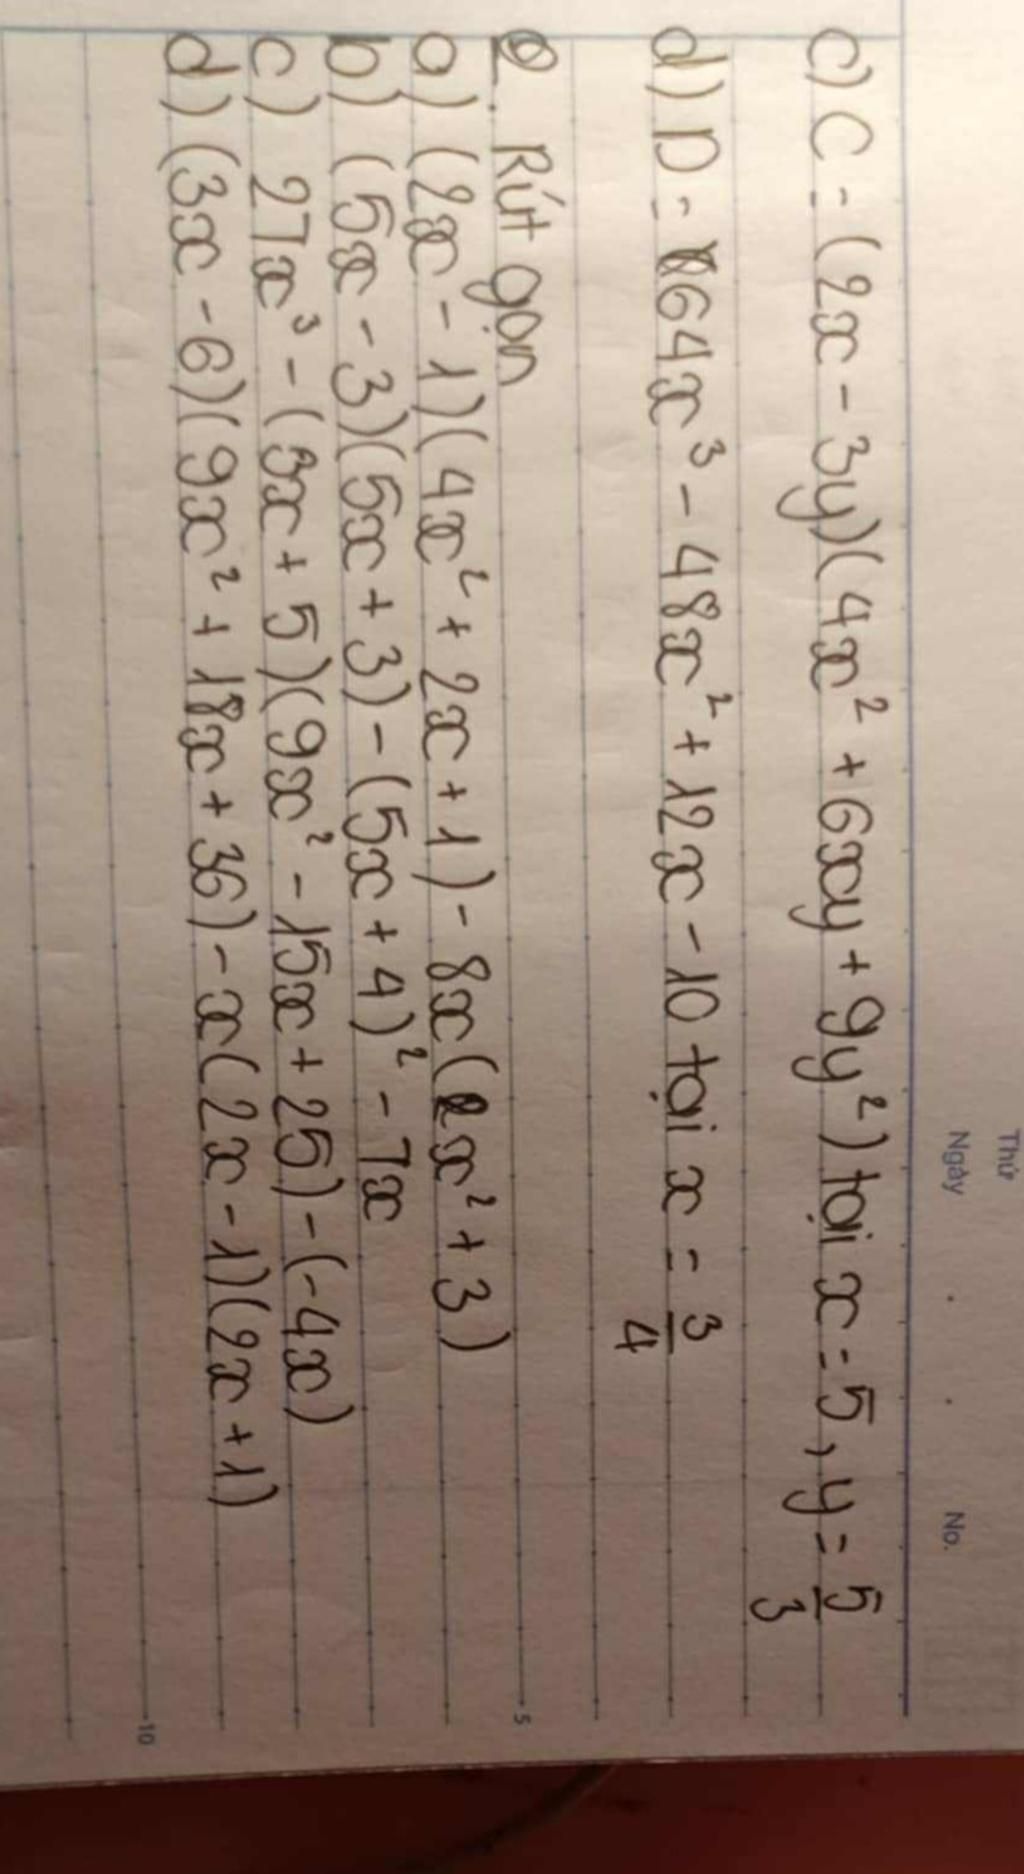 Thứ
Ngày . . No.
c) C = (2x - 3y)(4x² + 6xy + 9y²) tại x = 5, y = 5/3
d) D = 64x³ - 48x² + 12x - 10 tại x = 3/4
5
2. Rút gọn
a) (2x - 1)(4x² + 2x + 1) - 8x(2x² + 3)
b) (5x - 3)(5x + 3) - (5x + 4)² - 7x
c) 27x³ - (3x + 5)(9x² - 15x + 25) - (-4x)
d) (3x - 6)(9x² + 18x + 36) - x(2x - 1)(2x + 1)
10